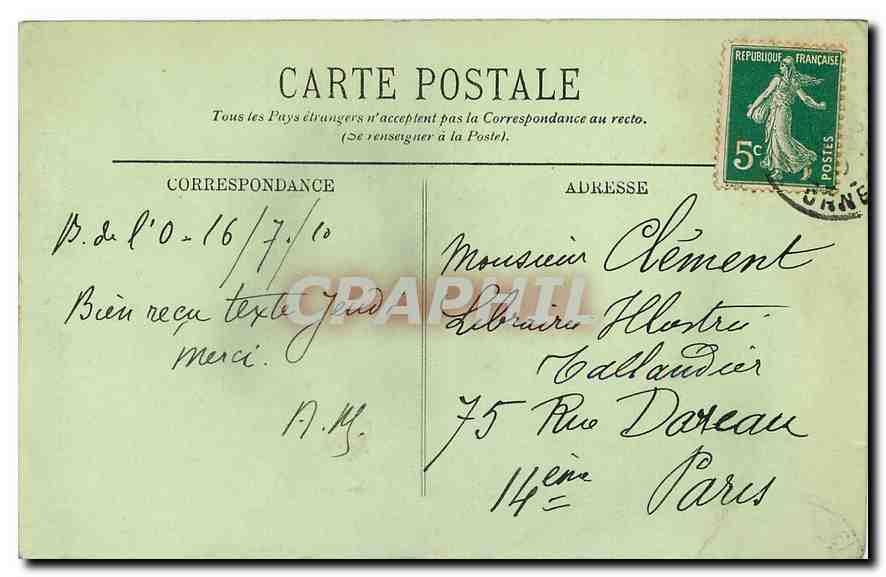 CARTE POSTALE
Tous les Pays étrangers n'acceptent pas la Correspondance au recto.
(Se renseigner à la Poste).
REPUBLIQUE FRANÇAISE
5c
POSTES
ORNE
CORRESPONDANCE
B. de l'O - 16/7/10
Bien reçu texte Jeudi
merci.
A. M.
ADRESSE
Monsieur Clément
Librairie Illustrée
Tallandier
75 Rue Dareau
14ème Paris
CPARAMA